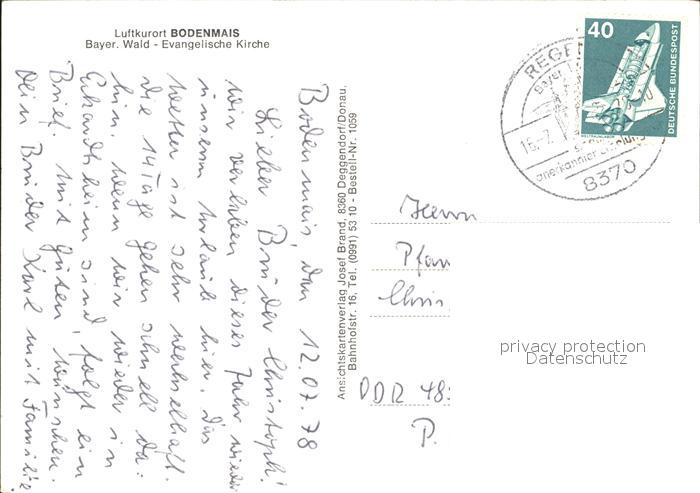 Luftkurort BODENMAIS
Bayer. Wald - Evangelische Kirche
Bodenmais, den 12.07.78
Lieber Bruder Christoph!
Wir verleben dieses Jahr wieder
unseren Urlaub hier. Das
Wetter ist sehr wechselhaft.
Die 14 Tage gehen schnell da=
hin. Wenn wir wieder in
Eckardtsheim sind, folgt ein
Brief. Mit guten Wünschen.
Dein Bruder Karl mit Familie
Ansichtskartenverlag Josef Brand, 8360 Deggendorf/Donau.
Bahnhofstr. 16, Tel. (0991) 53 10 - Bestell-Nr. 1059
40
DEUTSCHE BUNDESPOST
WELTRAUMLABOR
REGEN
Bayer.
anerkannter
8370
Herrn
Pfar
Chris
DDR 48:
P.
privacy protection
Datenschutz